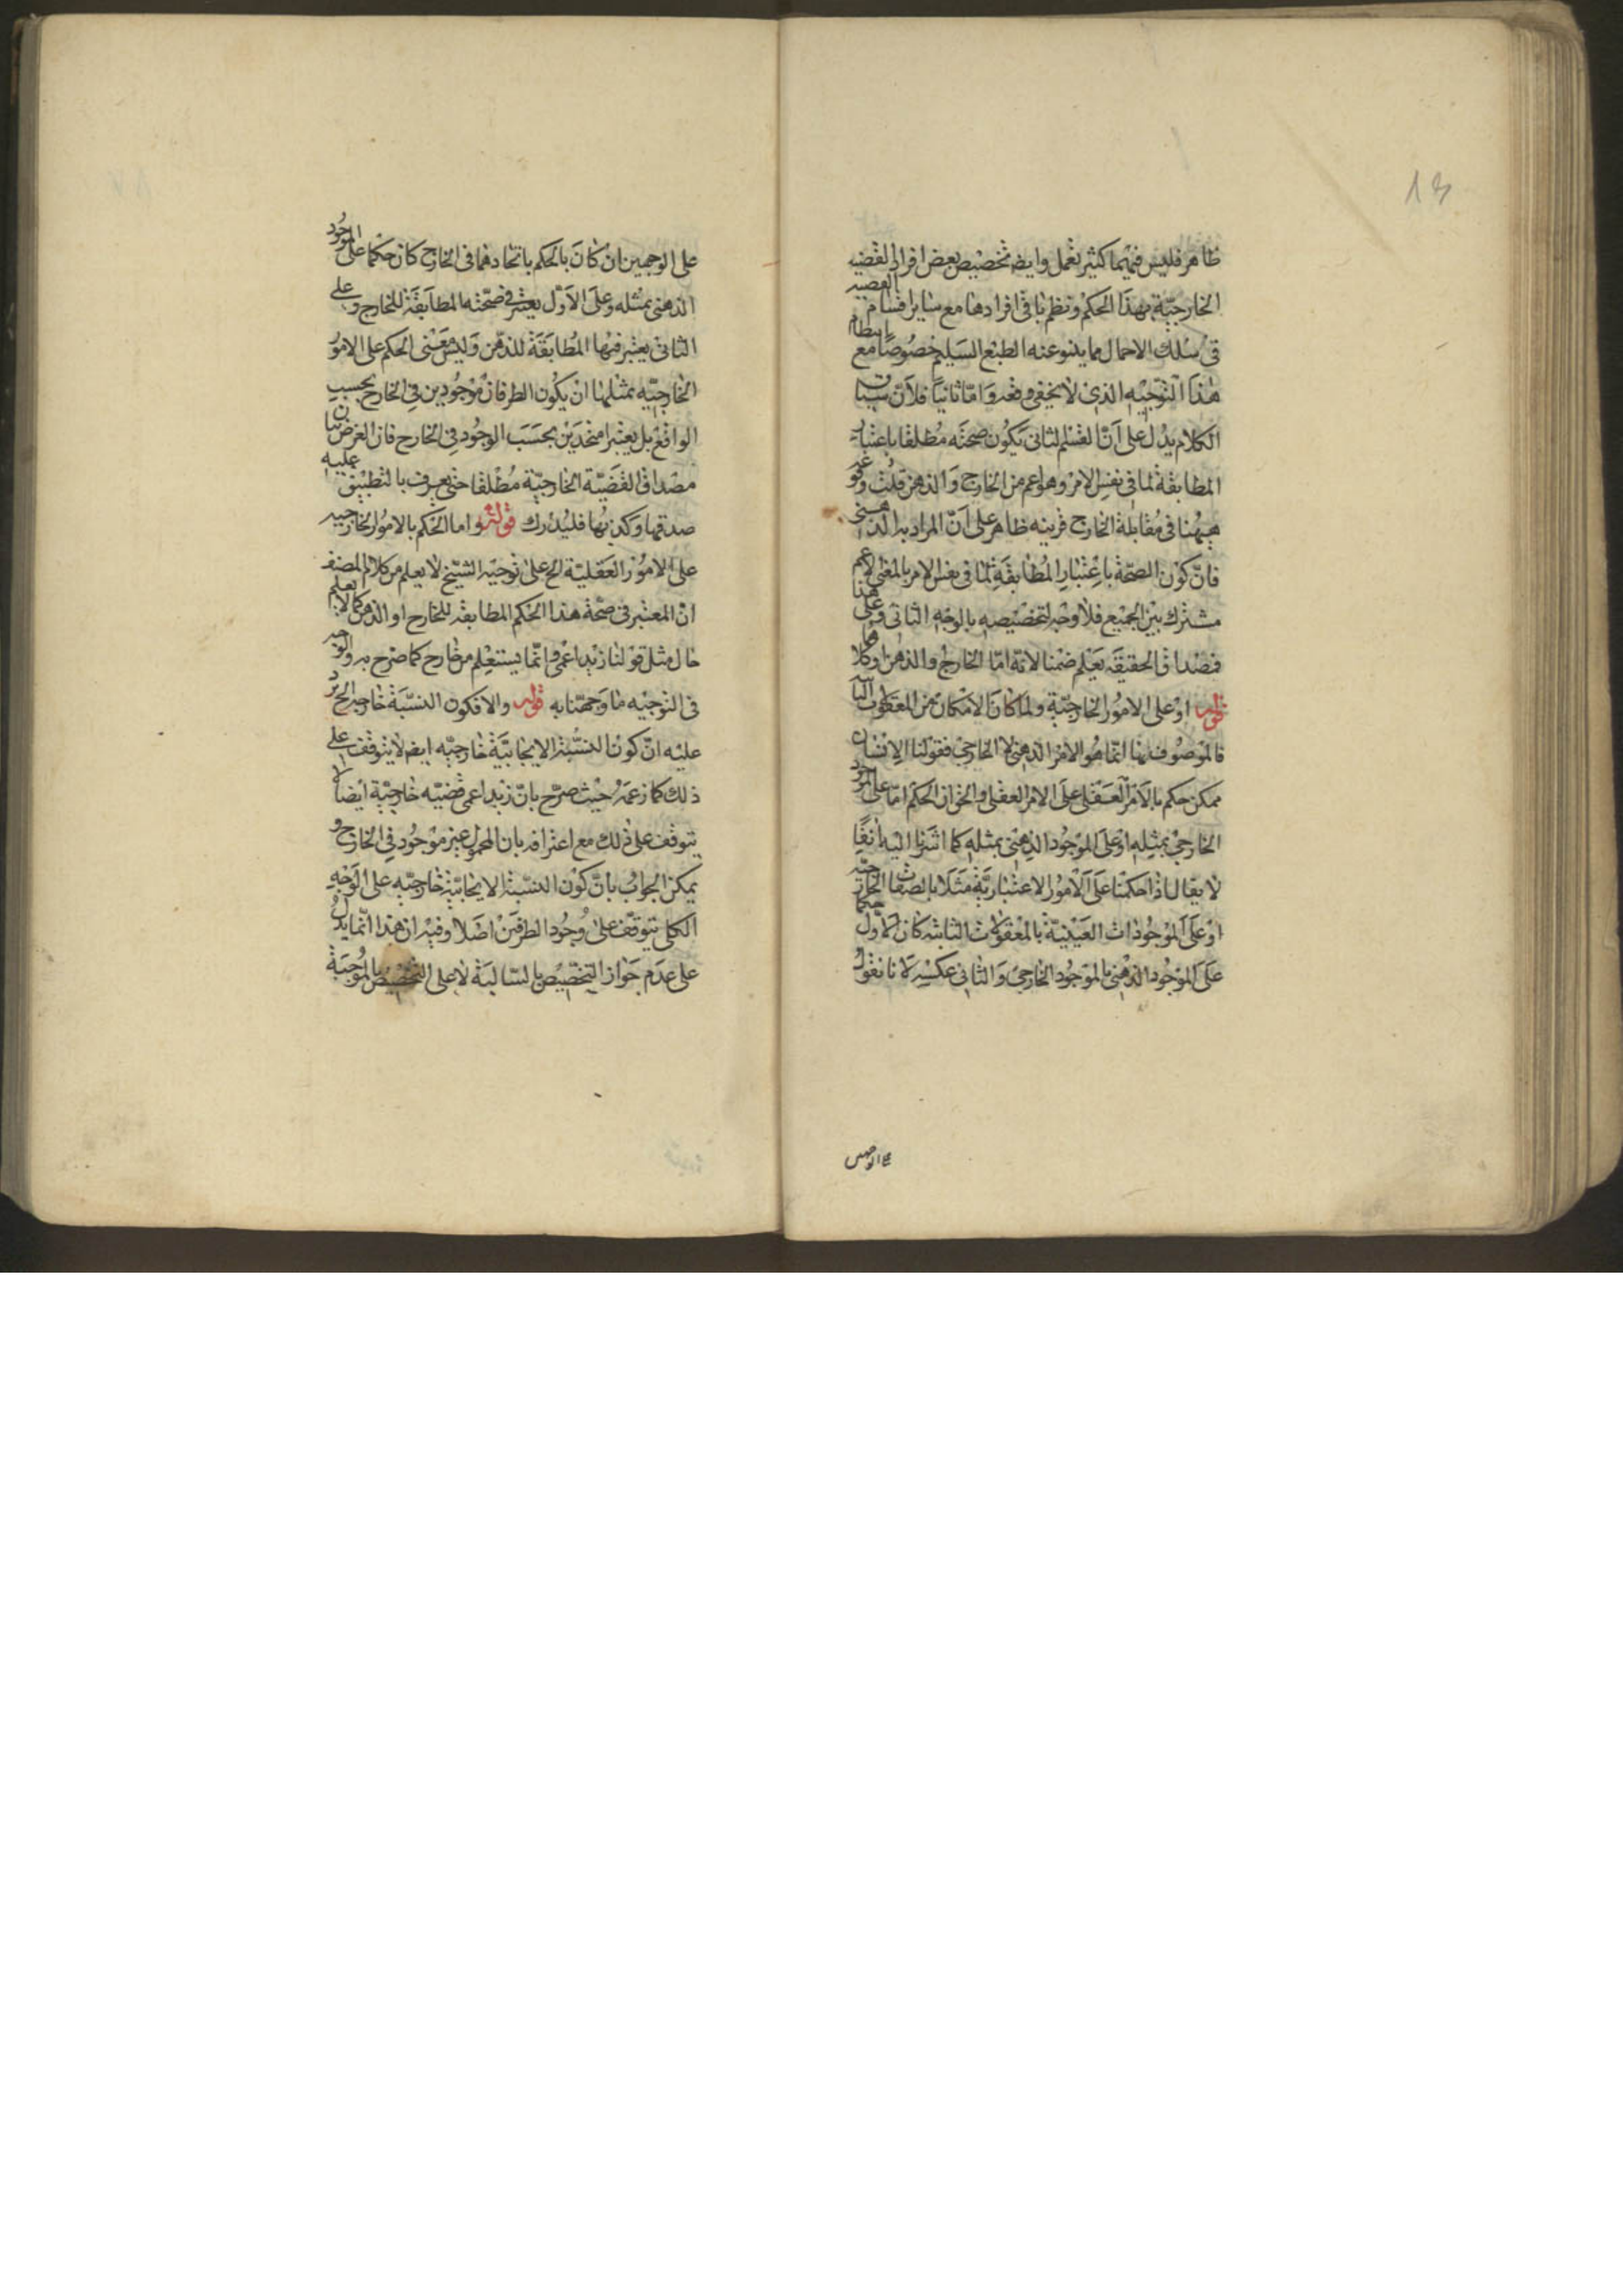 ظاهر فليس فيهما كثير تعمل وايضه تخصيص بعض افراد القضيه
الخارجيّة بهذا الحكم ونظم باقى افرادها مع ساير اقسام القضيه
فى سلك الاحمال مما ينبو عنه الطبع السليم خصوصًا مع
هذا التوجيه الذى لا يخفى وقعه وامّا ثانيًا فلانّ سياق
الكلام يدل على انّ القسم الثانى يكون صحته مطلقا باعتبار
المطابقة لما فى نفس الامر وهو اعم من الخارج والذهن قلت
ههنا فى مقابلة الخارج قرينه ظاهر على انّ المراد به الذهنى
فانّ كون الصحّة باعتبار المطابقة لما فى نفس الامر بالمعنى الاعم
مشترك بين الجميع فلا وجه لتخصيصه بالوجه الثانى وعلى هذا
فصداق الحقيقه يعلم ضمنا لانّه امّا الخارج والذهن او كلاهما
قوله او على الامور الخارجيّة ولما كان الامكان من المعقولات الثانيه
فالموصوف بها انّما هو الامر الذهنى لا الخارجى فقولنا الانسان
ممكن حكم بالامر العقلى على الامر العقلى والحق ان الحكم امّا على الموجود
الخارجى بمثله او على الموجود الذهنى بمثله كما اشرنا اليه انفًا
لا يقال اذا حكمنا على الامور الاعتباريّة مثلا بالصفات الخارجيّه
او على الموجودات العينيّة بالمعقولات الثانيه كان الاول حكما
على الموجود الذهنى بالموجود الخارجى والثانى عكسه لانا نقول
على الوجهين
13
على الوجهين ان كان بالحكم باتحادهما فى الخارج كان حكما على الموجود
الذهنى بمثله وعلى الاوّل يعتبر فى صحّته المطابقة للخارج وعلى
الثانى يعتبر فيها المطابقة للذهن وليس معنى الحكم على الامور
الخارجيّه بمثلها ان يكون الطرفان موجودين فى الخارج بحسب
الواقع بل يعتبرا متحدين بحسب الوجود فى الخارج فان الغرض بيان
مصداق القضيّة الخارجيّة مطلقا حتى يعرف بالتطبيق عليه
صدقها وكذبها فليدرك قوله واما الحكم بالامور الخارجيه
على الامور العقليّة الخ على توجيه الشيخ لا يعلم من كلام المصنف
ان المعتبر فى صحّة هذا الحكم المطابقه للخارج او الذهن كما لا يعلم
حال مثل قولنا زيد اعمى وانّما يستعلم من خارج كما صرح به والوجه
فى التوجيه ما وجهنا به قوله والا فكون النسبة خارجيه الخ يرد
عليه انّ كون النسبة الايجابيّة خارجيّه ايضه لا يتوقف على
ذلك كما زعمه حيث صرّح بانّ زيد اعمى قضيّه خارجيّة ايضا لا
يتوقف على ذلك مع اعترافه بان المحمول غير موجود فى الخارج و
يمكن الجواب بانّ كون النسبة الايجابيّة خارجيّه على الوجه
الكلى يتوقّف على وجود الطرفين اصلا وفيه ان هذا انّما يدل
على عدم جواز التخصيص بالسالبة لا على التخصيص بالموجبة